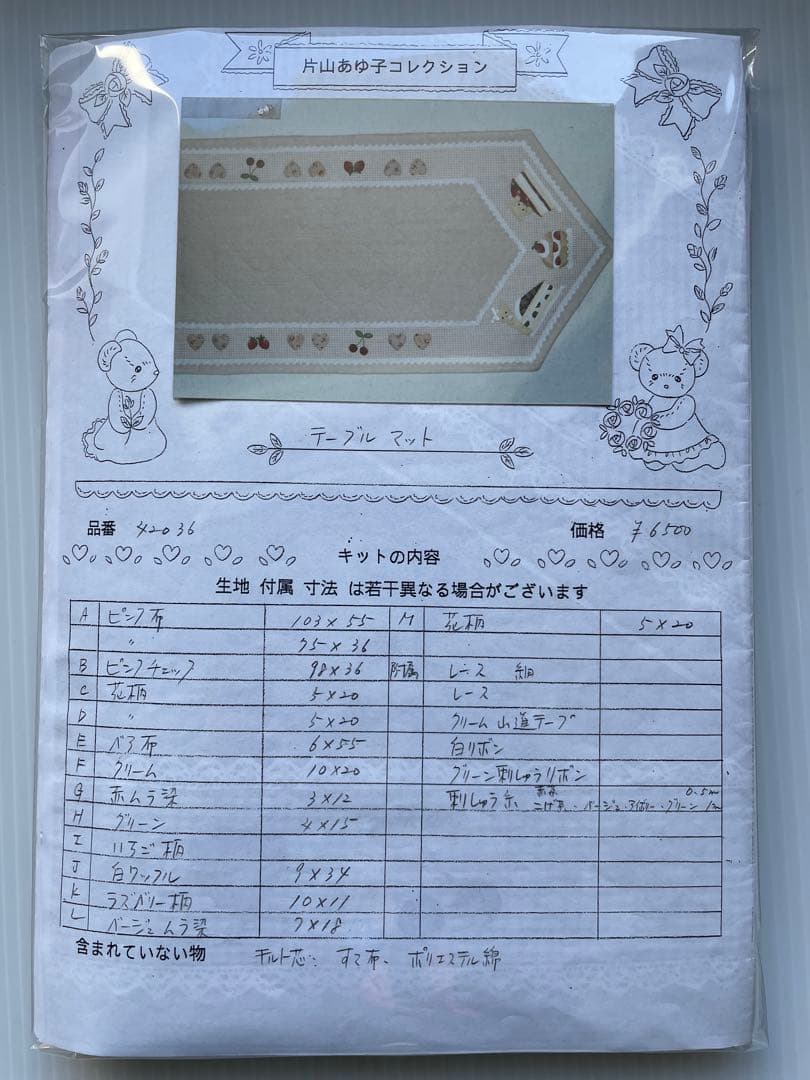 片山あゆ子コレクション
テーブル マット
品番 42036 価格 ¥6500
キットの内容
生地 付属 寸法 は若干異なる場合がございます
A ピンク布 103×55 M 花柄 5×20
〃 75×36
B ピンクチェック 98×36 附属 レース 細
C 花柄 5×20 レース
D 〃 5×20 クリーム山道テープ
E ベア布 6×55 白リボン
F クリーム 10×20 グリーン刺しゅうリボン
G 赤ムラ染 3×12 刺しゅう糸 こげ茶・ベージュ・グリーン 1m 0.5m
H グリーン 4×15
I いちご柄
J 白ワッフル 9×34
K ラズベリー柄 10×11
L ベージュムラ染 7×18
含まれていない物 キルト芯、すて布、ポリエステル綿